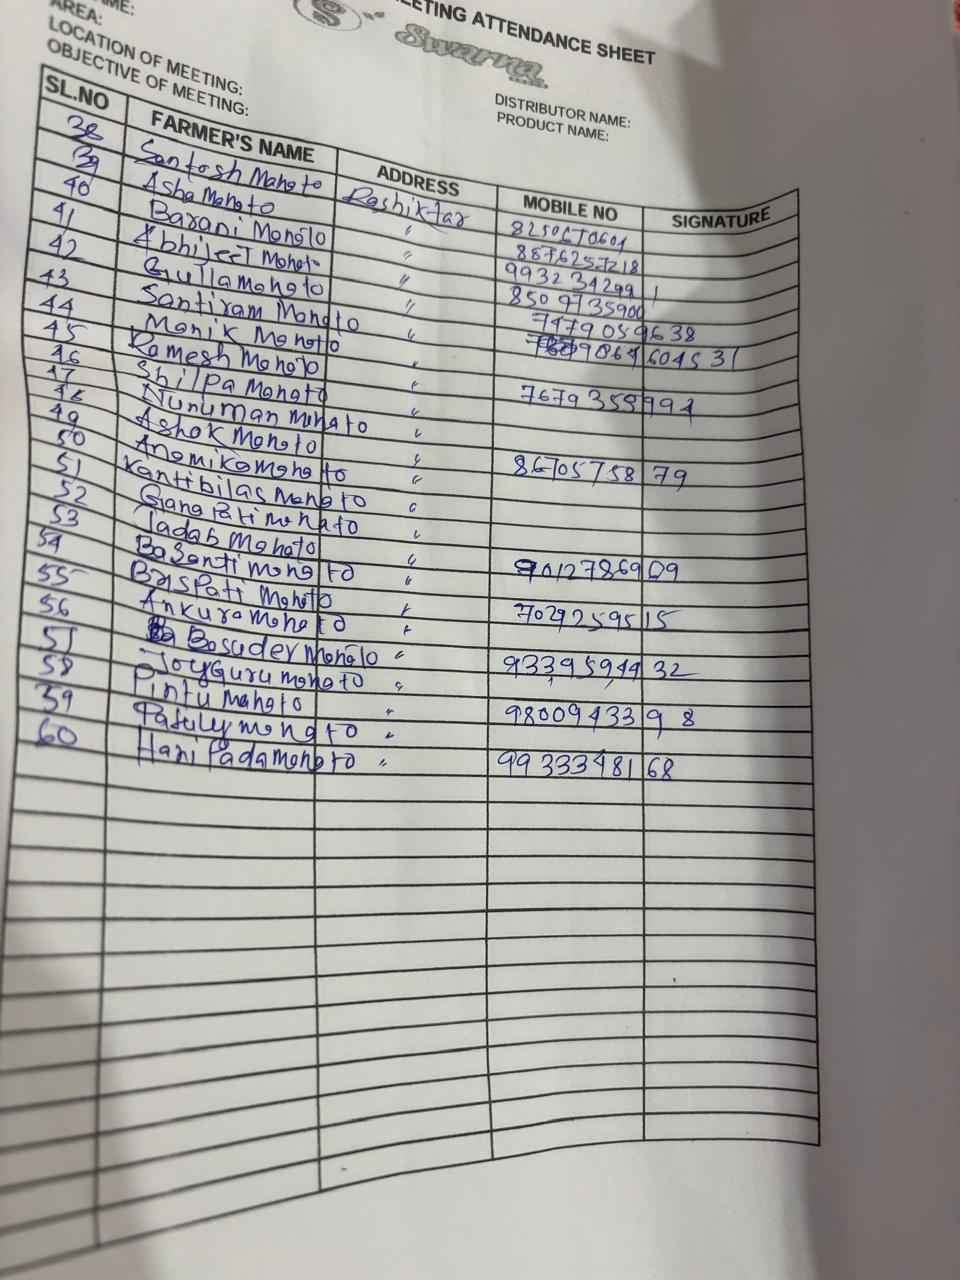 EETING ATTENDANCE SHEET
S Swarna
AREA:
LOCATION OF MEETING:
OBJECTIVE OF MEETING:
DISTRIBUTOR NAME:
PRODUCT NAME:
SL.NO FARMER'S NAME ADDRESS MOBILE NO SIGNATURE
38 Santosh Mahato Rashiktar 8250670601
39 Asha Mahato " 8876257218
40 Barani Mahato " 9932342991
41 Abhijeet Mahato " 8509735900
42 Gulla mahato " 7479059638
43 Santiram Mahato " 9864604531
44 Manik Mahato "
45 Ramesh Mahato " 7679355994
46 Shilpa Mahato "
47 Nunuman mahato "
48 Ashok Mahato " 8670575879
49 Anamika mahato "
50 Kantibilas Mahato "
51 Ganapati mahato "
52 Jadab Mahato " 9012786909
53 Basanti mahato "
54 Braspati Mahato " 7029259515
55 Ankura mahato "
56 Basuder Mahato " 9339594432
57 Joyguru mahato "
58 Pintu Mahato " 9800943398
39 Patuly mahato "
60 Hari Pada mahato " 9933348168